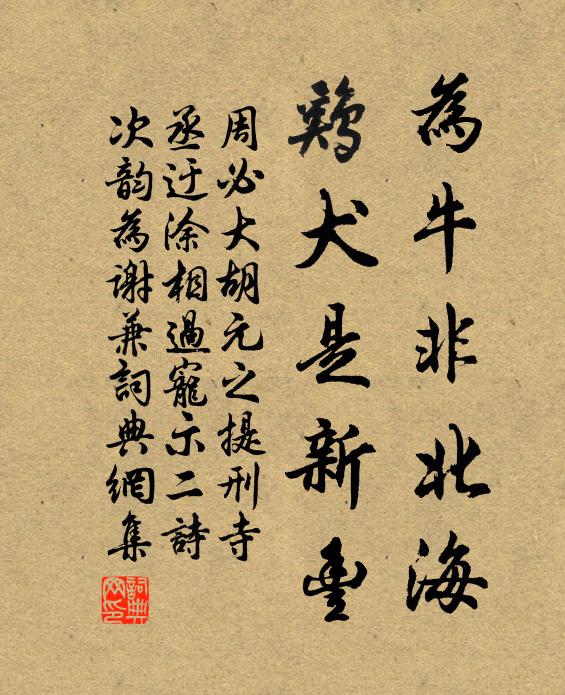 為牛非北海
鷄犬是新豐
周必大胡元之提刑寺
丞迂涂相過寵示二詩
次韵為謝兼詞典網集
詞典网印